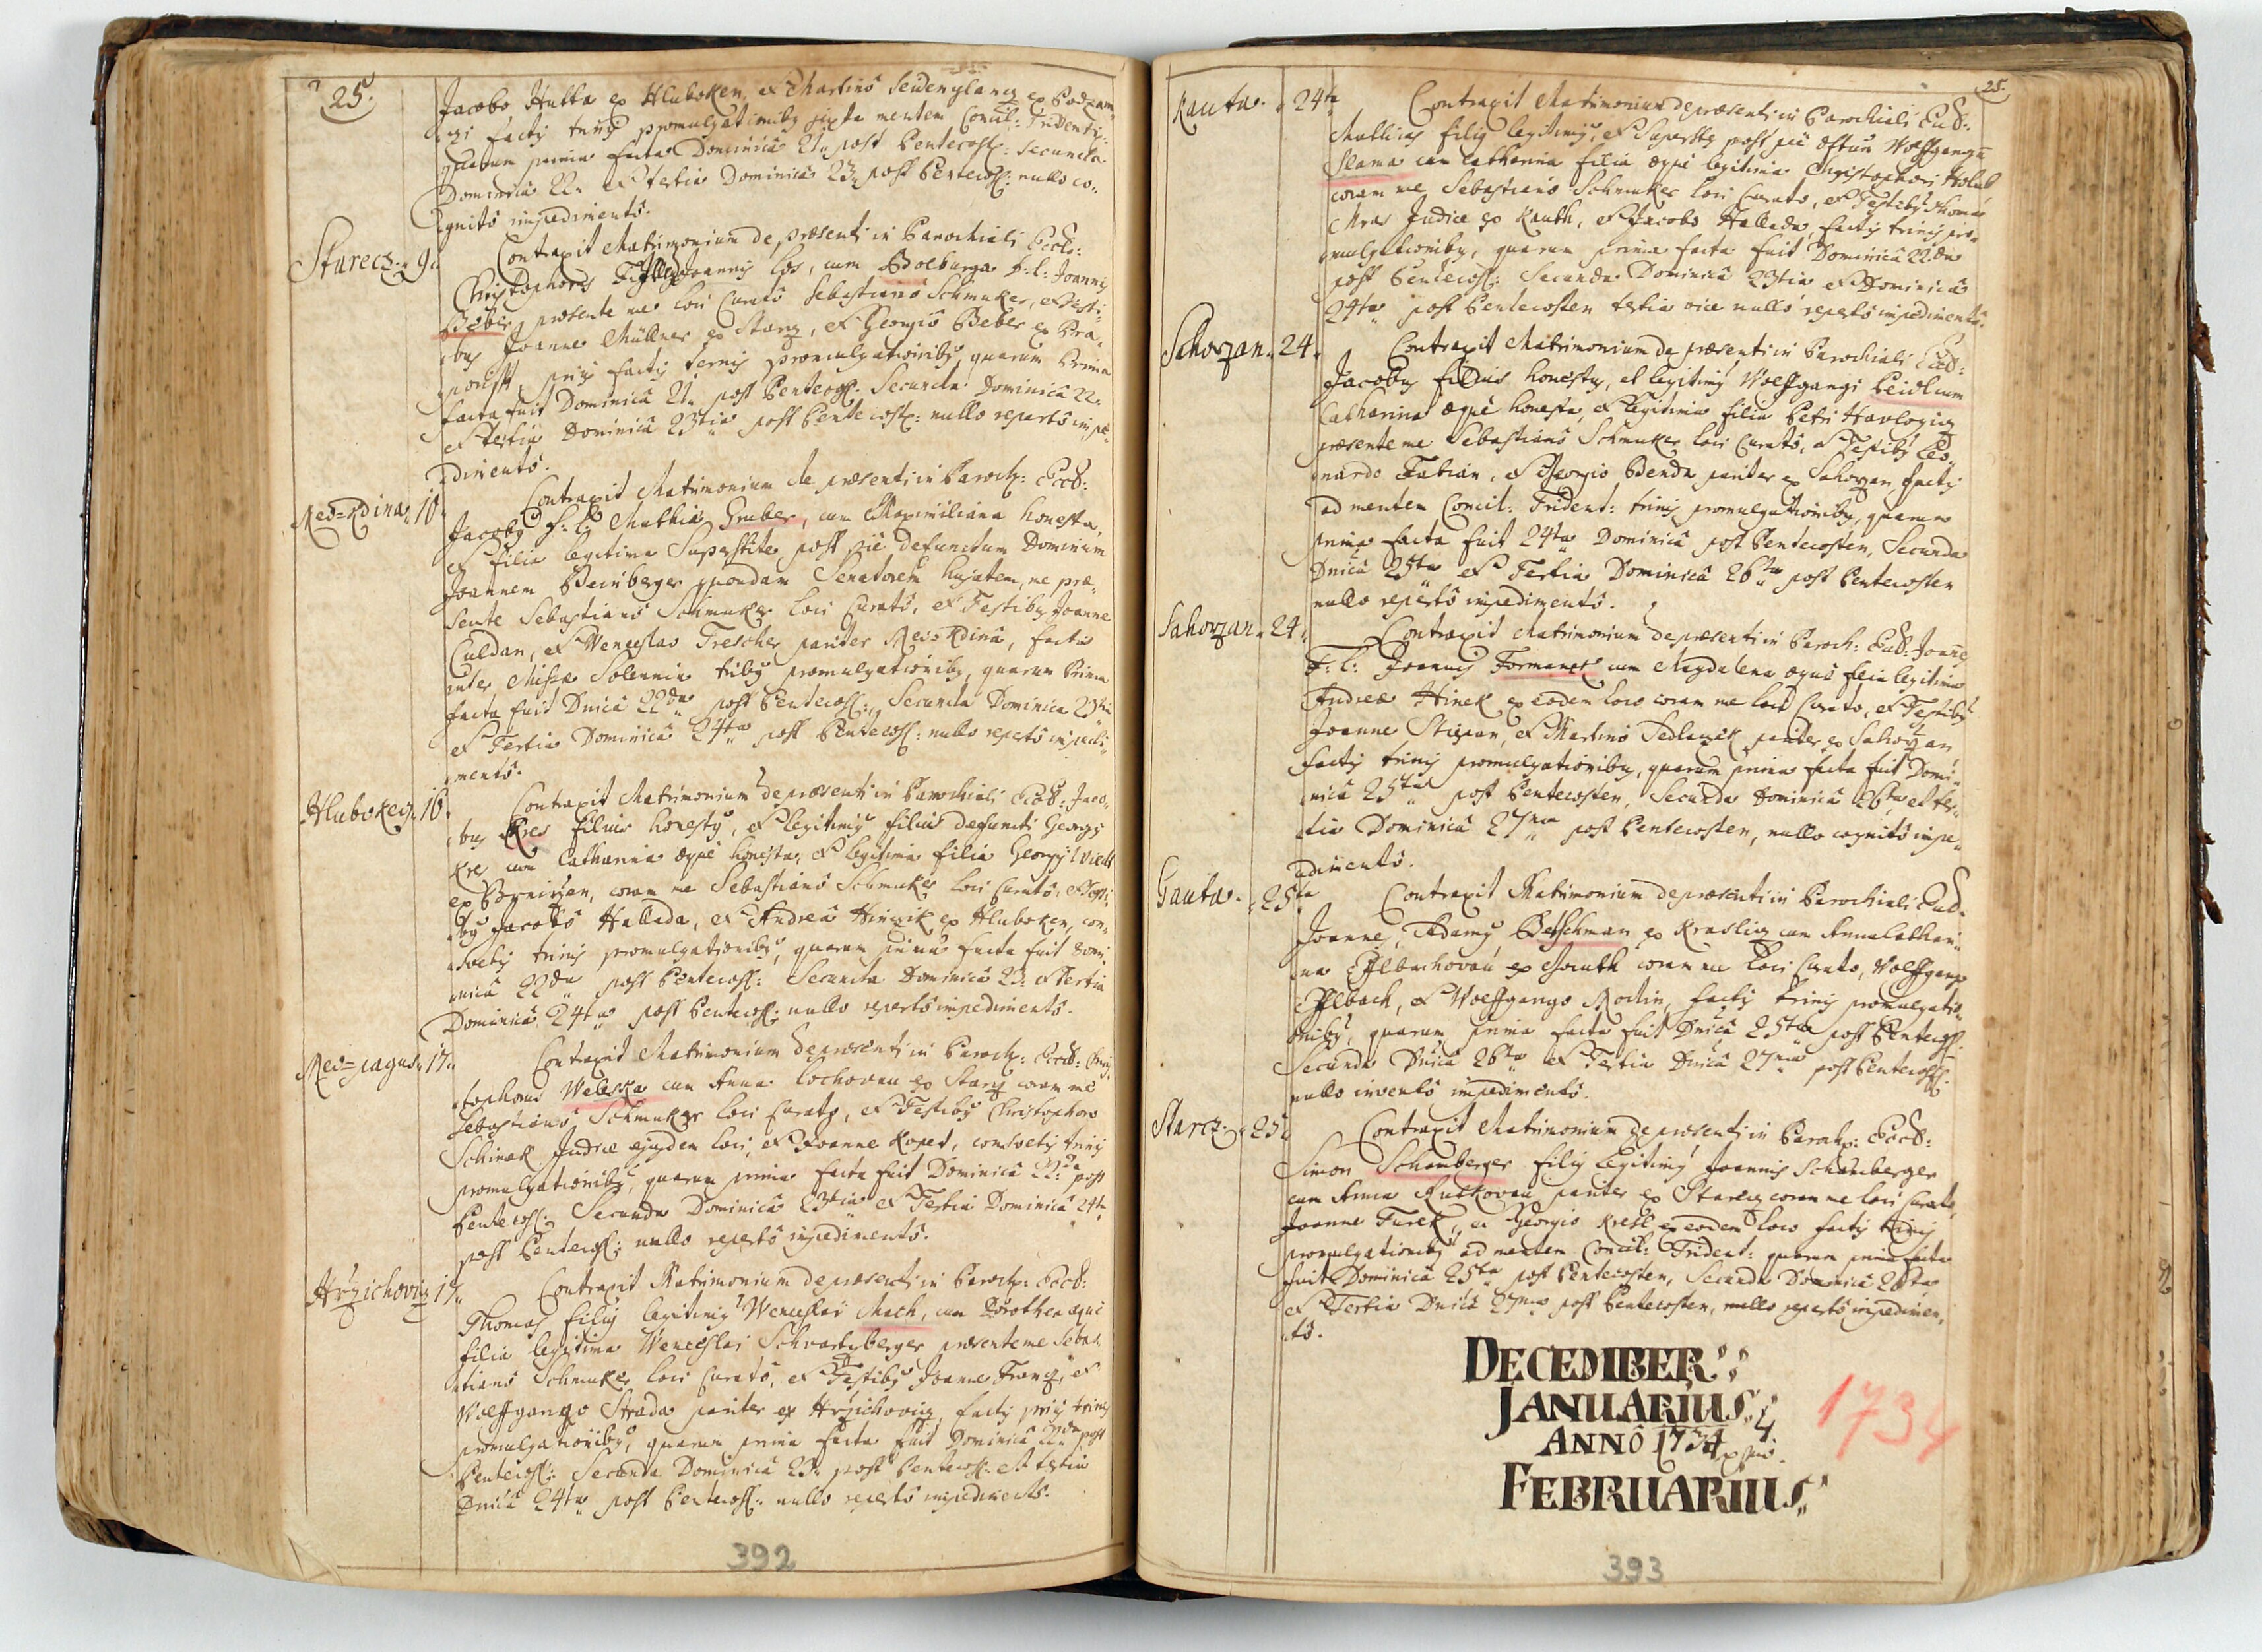 25.
Jacobo Hutta ex Hluboken, et Martinô Seidenglanz ex Podzam,
gi factis trinis promulgationibq juxta mentem Concil: Tridenti:
quarum prima facta Dominicâ 21. post Pentecost: Secunda
Dominicâ 22. et tertia Dominicâ 23. post Pentecost: nullo co„
gnitô impedimentô.
Starecz. 9.
Contraxit Matrimonium de præsenti in Parochiali Eccl:
Christophorus Joannis Los, cum F: L: Joannis
Beber, præsente me loci Curatô Sebastianô Schmuker, et Testi„
bus Joanne Müllner ex Starz, et Georgiô Beber ex
factis ternis promulgationibq, quarum Prima
facta fuit Dominicâ 21. post Pentecost: Secunda Dominicâ 22.
et tertia Dominicâ 23tia post Pentecost: nullo repertô impe„
dimentô.
10.
Contraxit Matrimonium de præsenti in Paroch: Eccl:
Jacobq F: L: Mathiæ Gruber, cum Maximiliana honesta,
et filia legitima Superstite post piè defunctum Dominum
Joannem Beinberger quondam Senatorem hujatem, me præ„
sente Sebastianô Schmuker loci Curatô, et Testibq Joanne
Culdan, et Venceslao Trescher pariter factis
inter Missæ Solennia tribq promulgationibq, quarum Prima
facta fuit Dnicâ 22da post Pentecost: Secunda Dominica 23tia
et Tertia Dominicâ 24ta post Pentecost: nullo repertô impedi„
mentô.
Hluboken. 16.
Contraxit Matrimonium de præsenti in Parochiali Eccl: Jaco„
bus Kres filius honestq, et legitimq filius defuncti Georgij
Kres cum Catharina æquè honesta, et legitima filia Georgij
ex coram me Sebastianô Schmuker loci Curatô, et Testi„
bq Jacobô Hallada, et Andreâ ex Hluboken, con„
svetis trinis promulgationibq, quarum prima facta fuit Domi„
nicâ 22da post Pentecost: Secunda Dominicâ 23. et tertia
Dominicâ 24ta post Pentecost: nullo repertô impedimentô.
17.
Contraxit Matrimonium de præsenti in Paroch: Eccl: Chris„
tophorus Weleska cum Anna Lochovan ex Starz coram me
Sebastianô Schmuker loci Curato, et Testibq Christophoro
Schinak Judice ejusdem loci, et Joanne Koped, consvetis trinis
promulgationibq, quarum prima facta fuit Dominicâ 22da post
Pentecost: Secunda Dominicâ 23tia et Tertia Dominicâ 24ta
post Pentecost: nullo repertô impedimentô.
Hrzichoviz 17.
Contraxit Matrimonium de præsenti in Paroch: Eccl:
Thomas filiq legitimq Wenceslai Mach, cum Dorothea æquè
filia legitima Wenceslai Schvartzberger præsente me Sebas„
tianô Schmuker loci Curatô, et Testibq Joanne Franz, et
Wolffgango Strada pariter ex Hrzichoviz, factis priq trinis
promulgationibq, quarum prima facta fuit Dominicâ 22da post
Pentecost: Secunda Dominicâ 23. post Pentecost: et tertia
Dnicâ 24ta post Pentecost: nullo repertô impedimentô.
392
25.
Kauta. 24ta
Contraxit Matrimonium de præsenti in Parochiali Eccl:
Mathias filiq legitimq, et Superstes post piè Wolffgangu
Slama cum Catharina filia æquè legitima Christophori Holub
coram me Sebastianô Schmuker loci Curato, et Testibq Thoma
Mras Judice ex Kauth, et Jacobo Hallada, factis trinis pro„
mulgationibq, quarum prima facta fuit Dominica 22da
post Pentecost: Secunda Dominicâ 23tia et Dominicâ
24ta post Pentecosten tertia vice nullô repertô impedimentô.
Sahorzan. 24.
Contraxit Matrimonium de præsenti in Parochiali Eccl:
Jacobq filius honestq, et legitimq Wolffgangi Peidl cum
Catharina æquè honesta, et legitima filia Petri
præsente me Sebastianô Schmuker loci Curatô, et Testibq Leo„
nardo Fabian, et Georgio Benda pariter ex Sahorzan factis
ad mentem Concil: Trident: trinis promulgationibq, quarum
prima facta fuit 24ta Dominicâ post Pentecosten, Secunda
Dnicâ 25ta et Tertia Dominicâ 26ta post Pentecosten
nullo repertô impedimentô.
Sahorzan. 24.
Contraxit Matrimonium de præsenti in Paroch: Eccl: Joanes
F: L: Joannis Formanek cum Magdalena æquè filia legitima
Andreæ Hinek ex eodem loco coram me loci Curato, et Testibq
Joanne Stiepan, et Martino Sedlacek pariter ex Sahorzan
factis trinis promulgationibq, quarum prima facta fuit Domi„
nicâ 25ta post Pentecosten, Secunda Dominicâ 26ta et ter„
tia Dominicâ 27ma post Pentecosten, nullo cognitô impe„
dimentô.
Gauta. 25ta
Contraxit Matrimonium de præsenti in Parochiali Eccl:
Joannes, Adami Betschman ex Krasliz cum Anna Cathari„
na ex coram me loci Curato, Wolffgango
et Wolffgango factis trinis promulgatio„
nibq, quarum prima facta fuit Dnicâ 25ta post Pentecost:
Secunda Dnicâ 26ta et Tertia Dnicâ 27ma post Pentecost:
nullo inventô impedimentô.
Starcz. 25.
Contraxit Matrimonium de præsenti in Paroch: Eccl:
Simon Schamberger filiq legitimq Joannis Schamberger
cum Anna pariter ex Starcz coram me loci Curato,
Joanne Turek, et Georgio Krebl ex eodem loco factis trinis
promulgationibq ad mentem Concil: Trident: quarum prima facta
fuit Dominicâ 25ta post Pentecosten, Secunda Dominicâ 26ta
et Tertia Dnicâ 27ma post Pentecosten, nullo repertô impedimen„
tô.
DECEMBER
JANUARIUS
ANNÔ 1734
FEBRUARIUS
1734
393